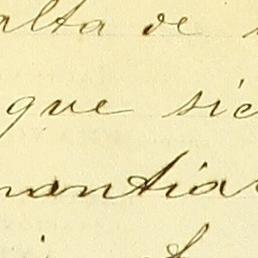 alta de
que sie
mantia